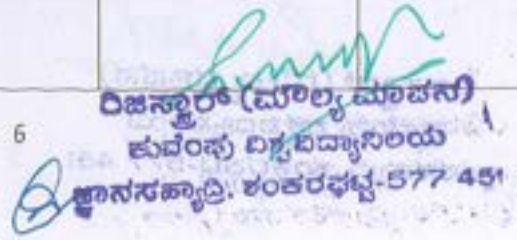 ರಿಜಿಸ್ಟ್ರಾರ್ (ಮೌಲ್ಯಮಾಪನ)
6
ಕುವೆಂಪು ವಿಶ್ವವಿದ್ಯಾನಿಲಯ
ಜ್ಞಾನಸಹ್ಯಾದ್ರಿ, ಶಂಕರಘಟ್ಟ-577 451